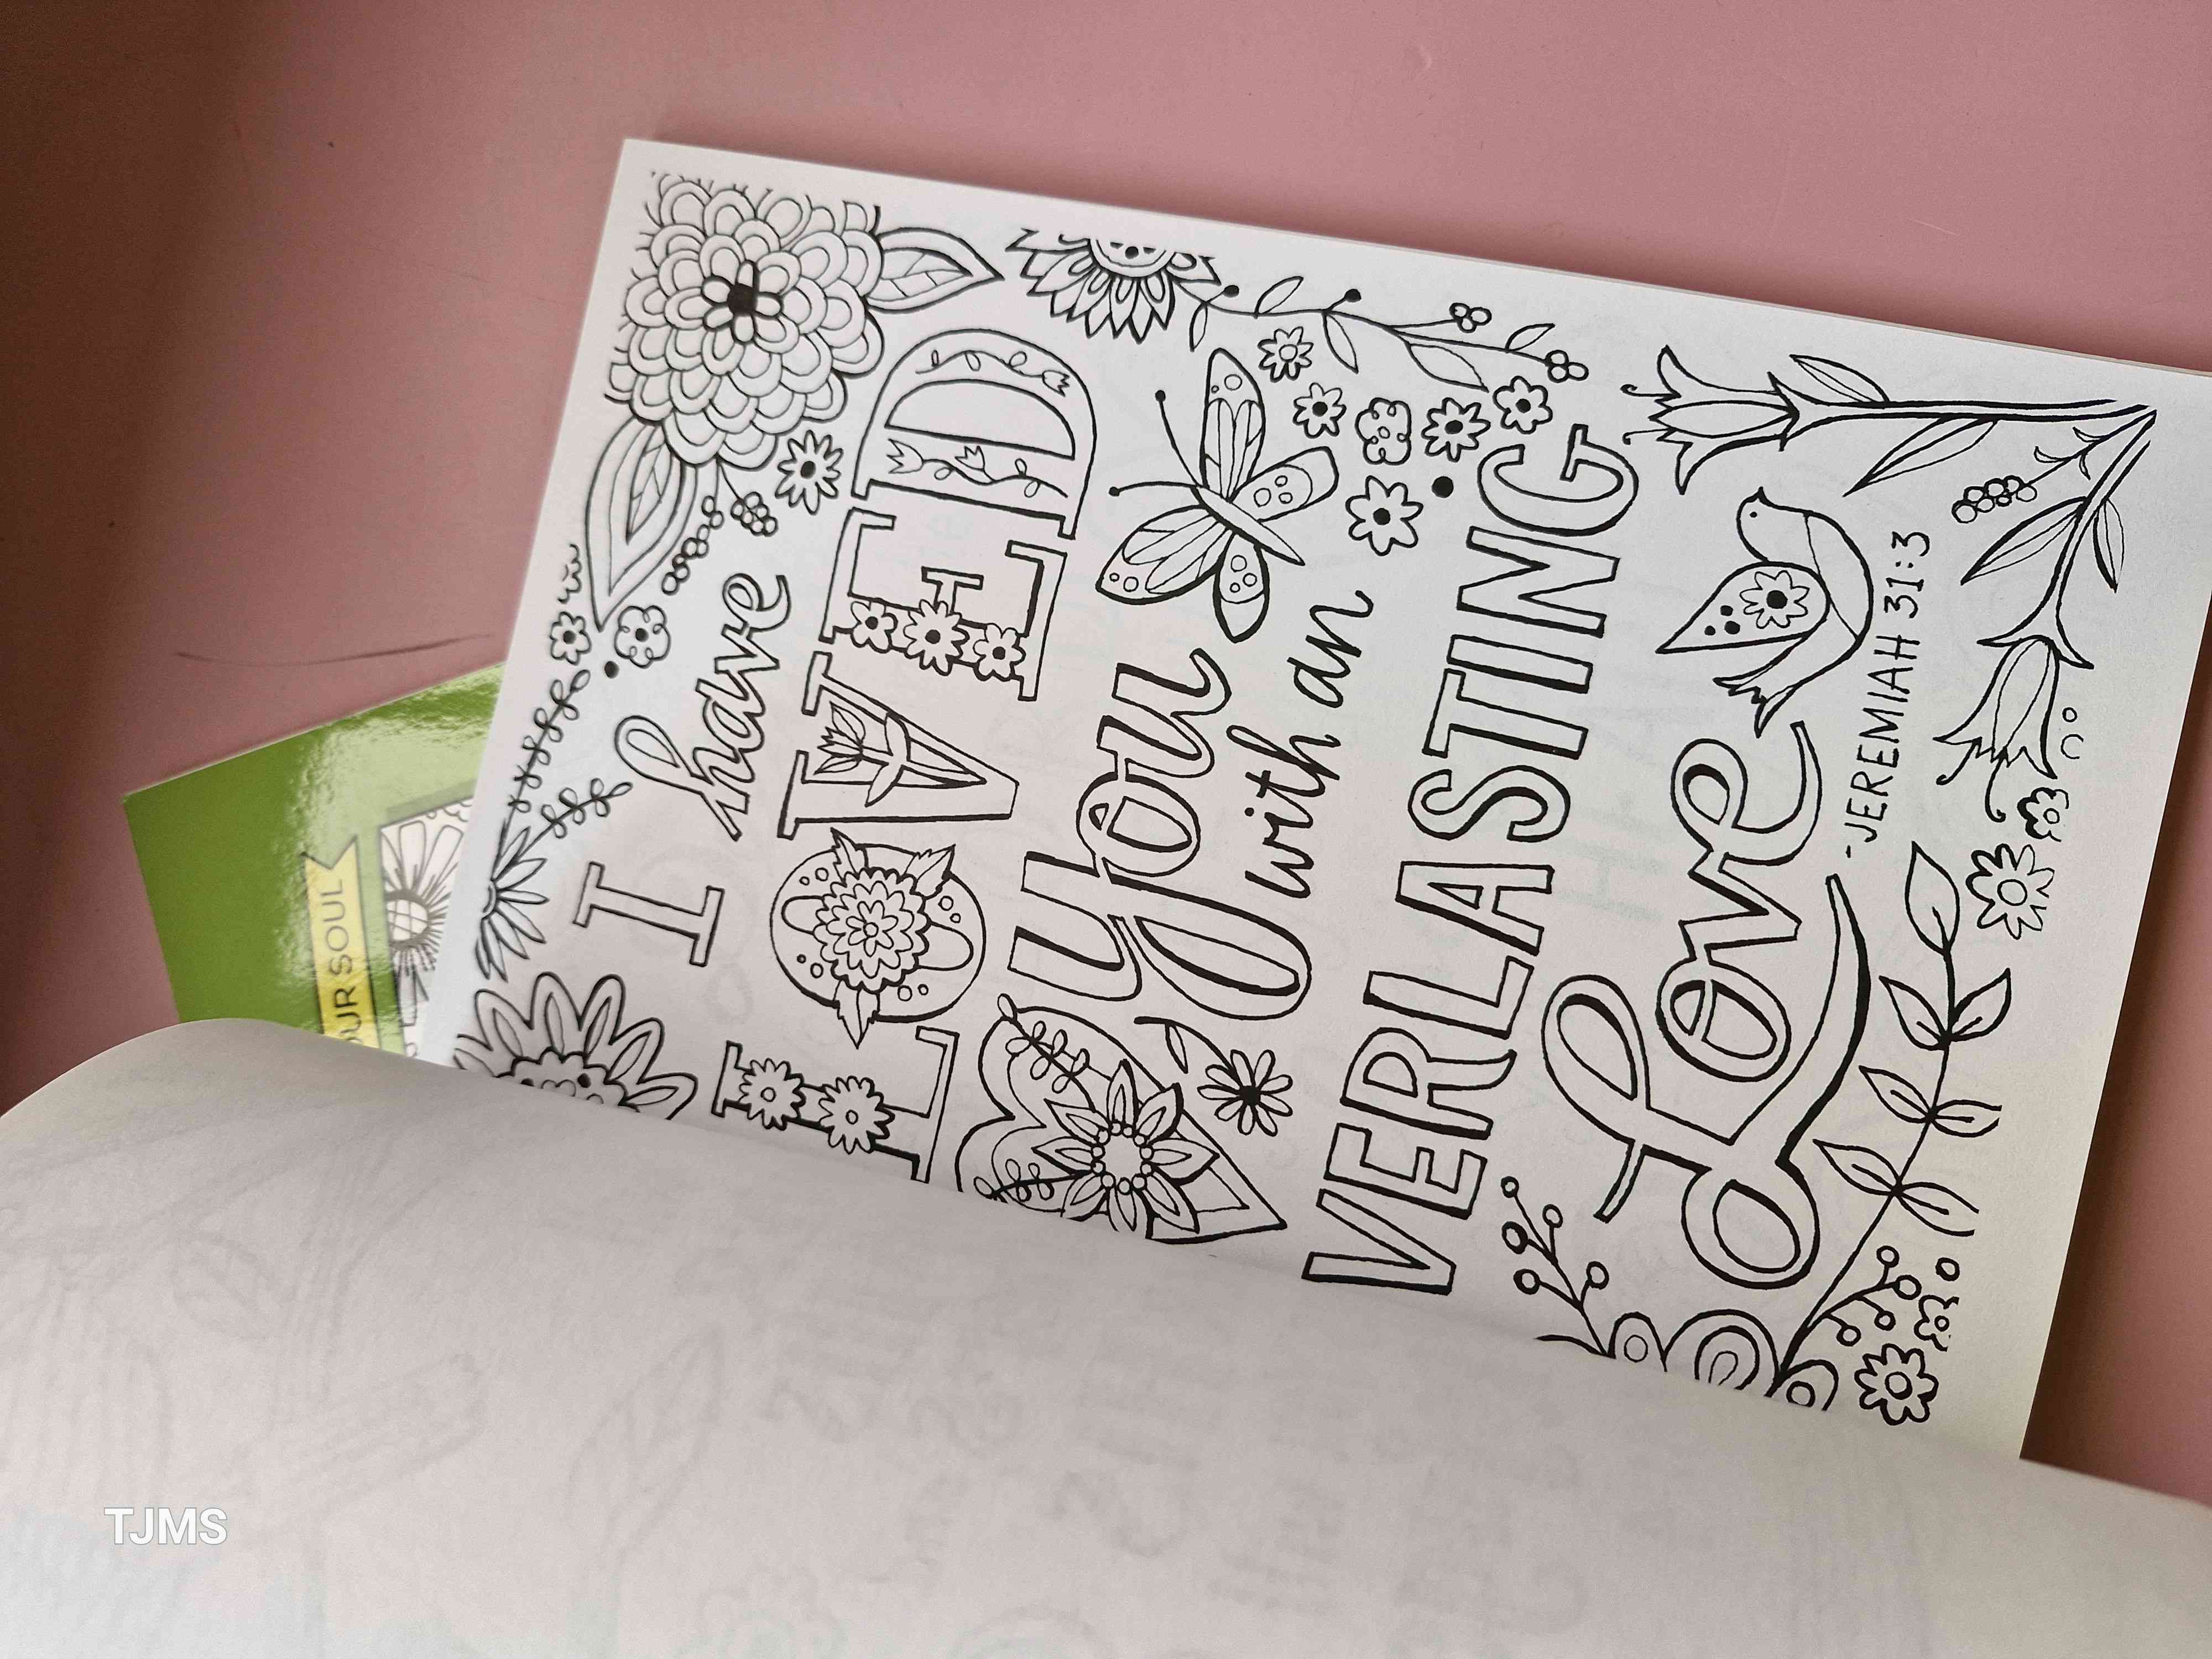 I have
LOVED
you
with an
EVERLASTING
Love
-JEREMIAH 31:3
OUR SOUL
TJMS